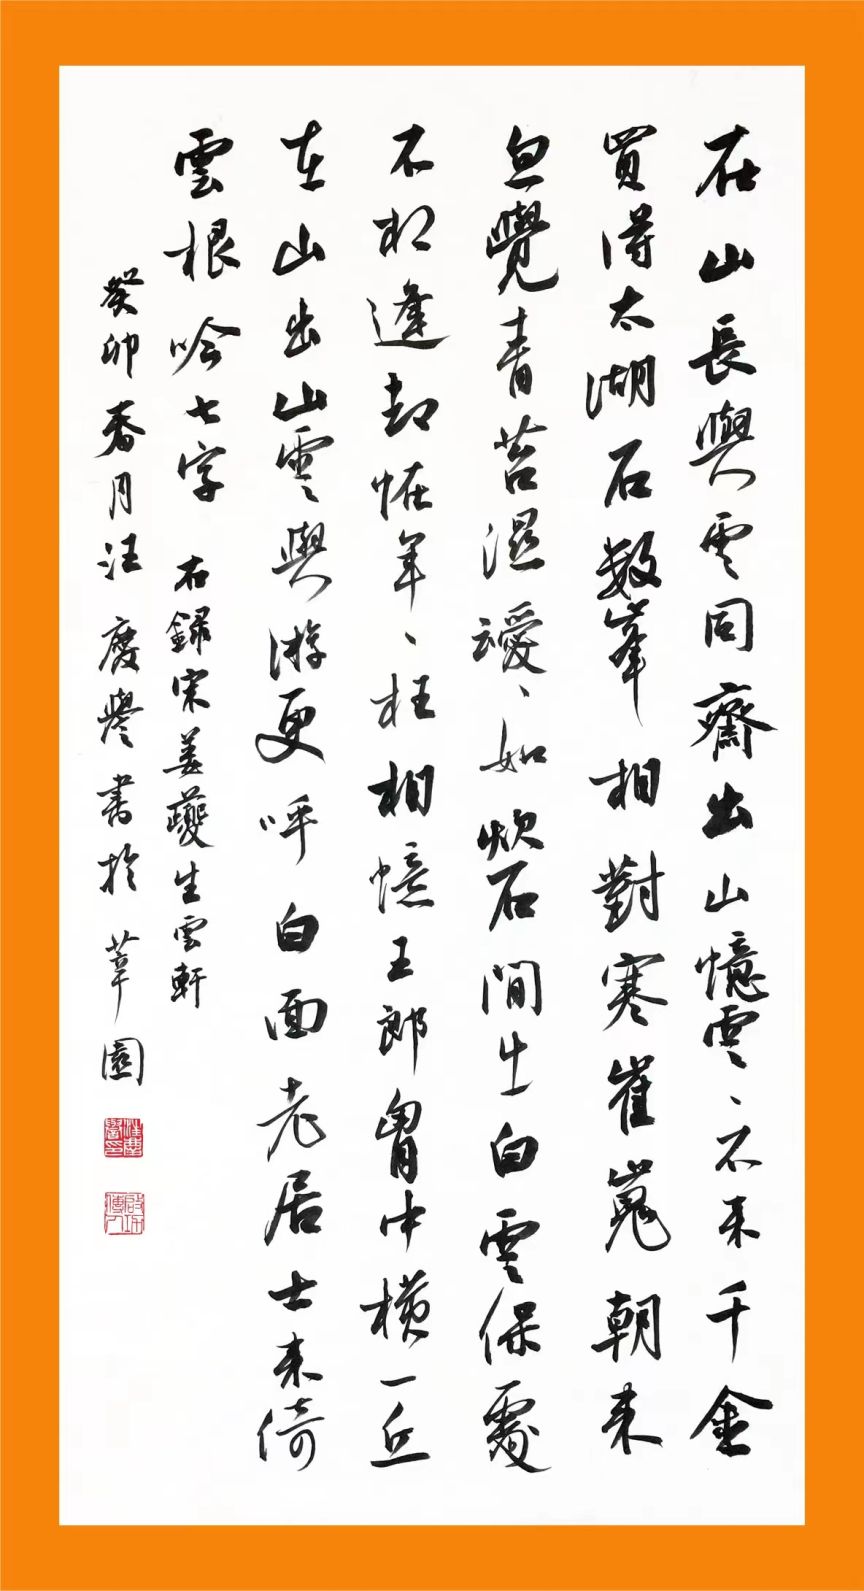 在山長與雲同齋出山憶雲、不来千金
買得太湖石数峯相對寒崔嵬朝来
忽覺青苔濕靉、如炊石間生白雲保處
不相逢却恠年、枉相憶王郎胷中横一丘
在山出山雲與游更呼白面老居士来倚
雲根吟七字 右錄宋姜夔生雲軒
癸卯春月汪慶譽書於葦園